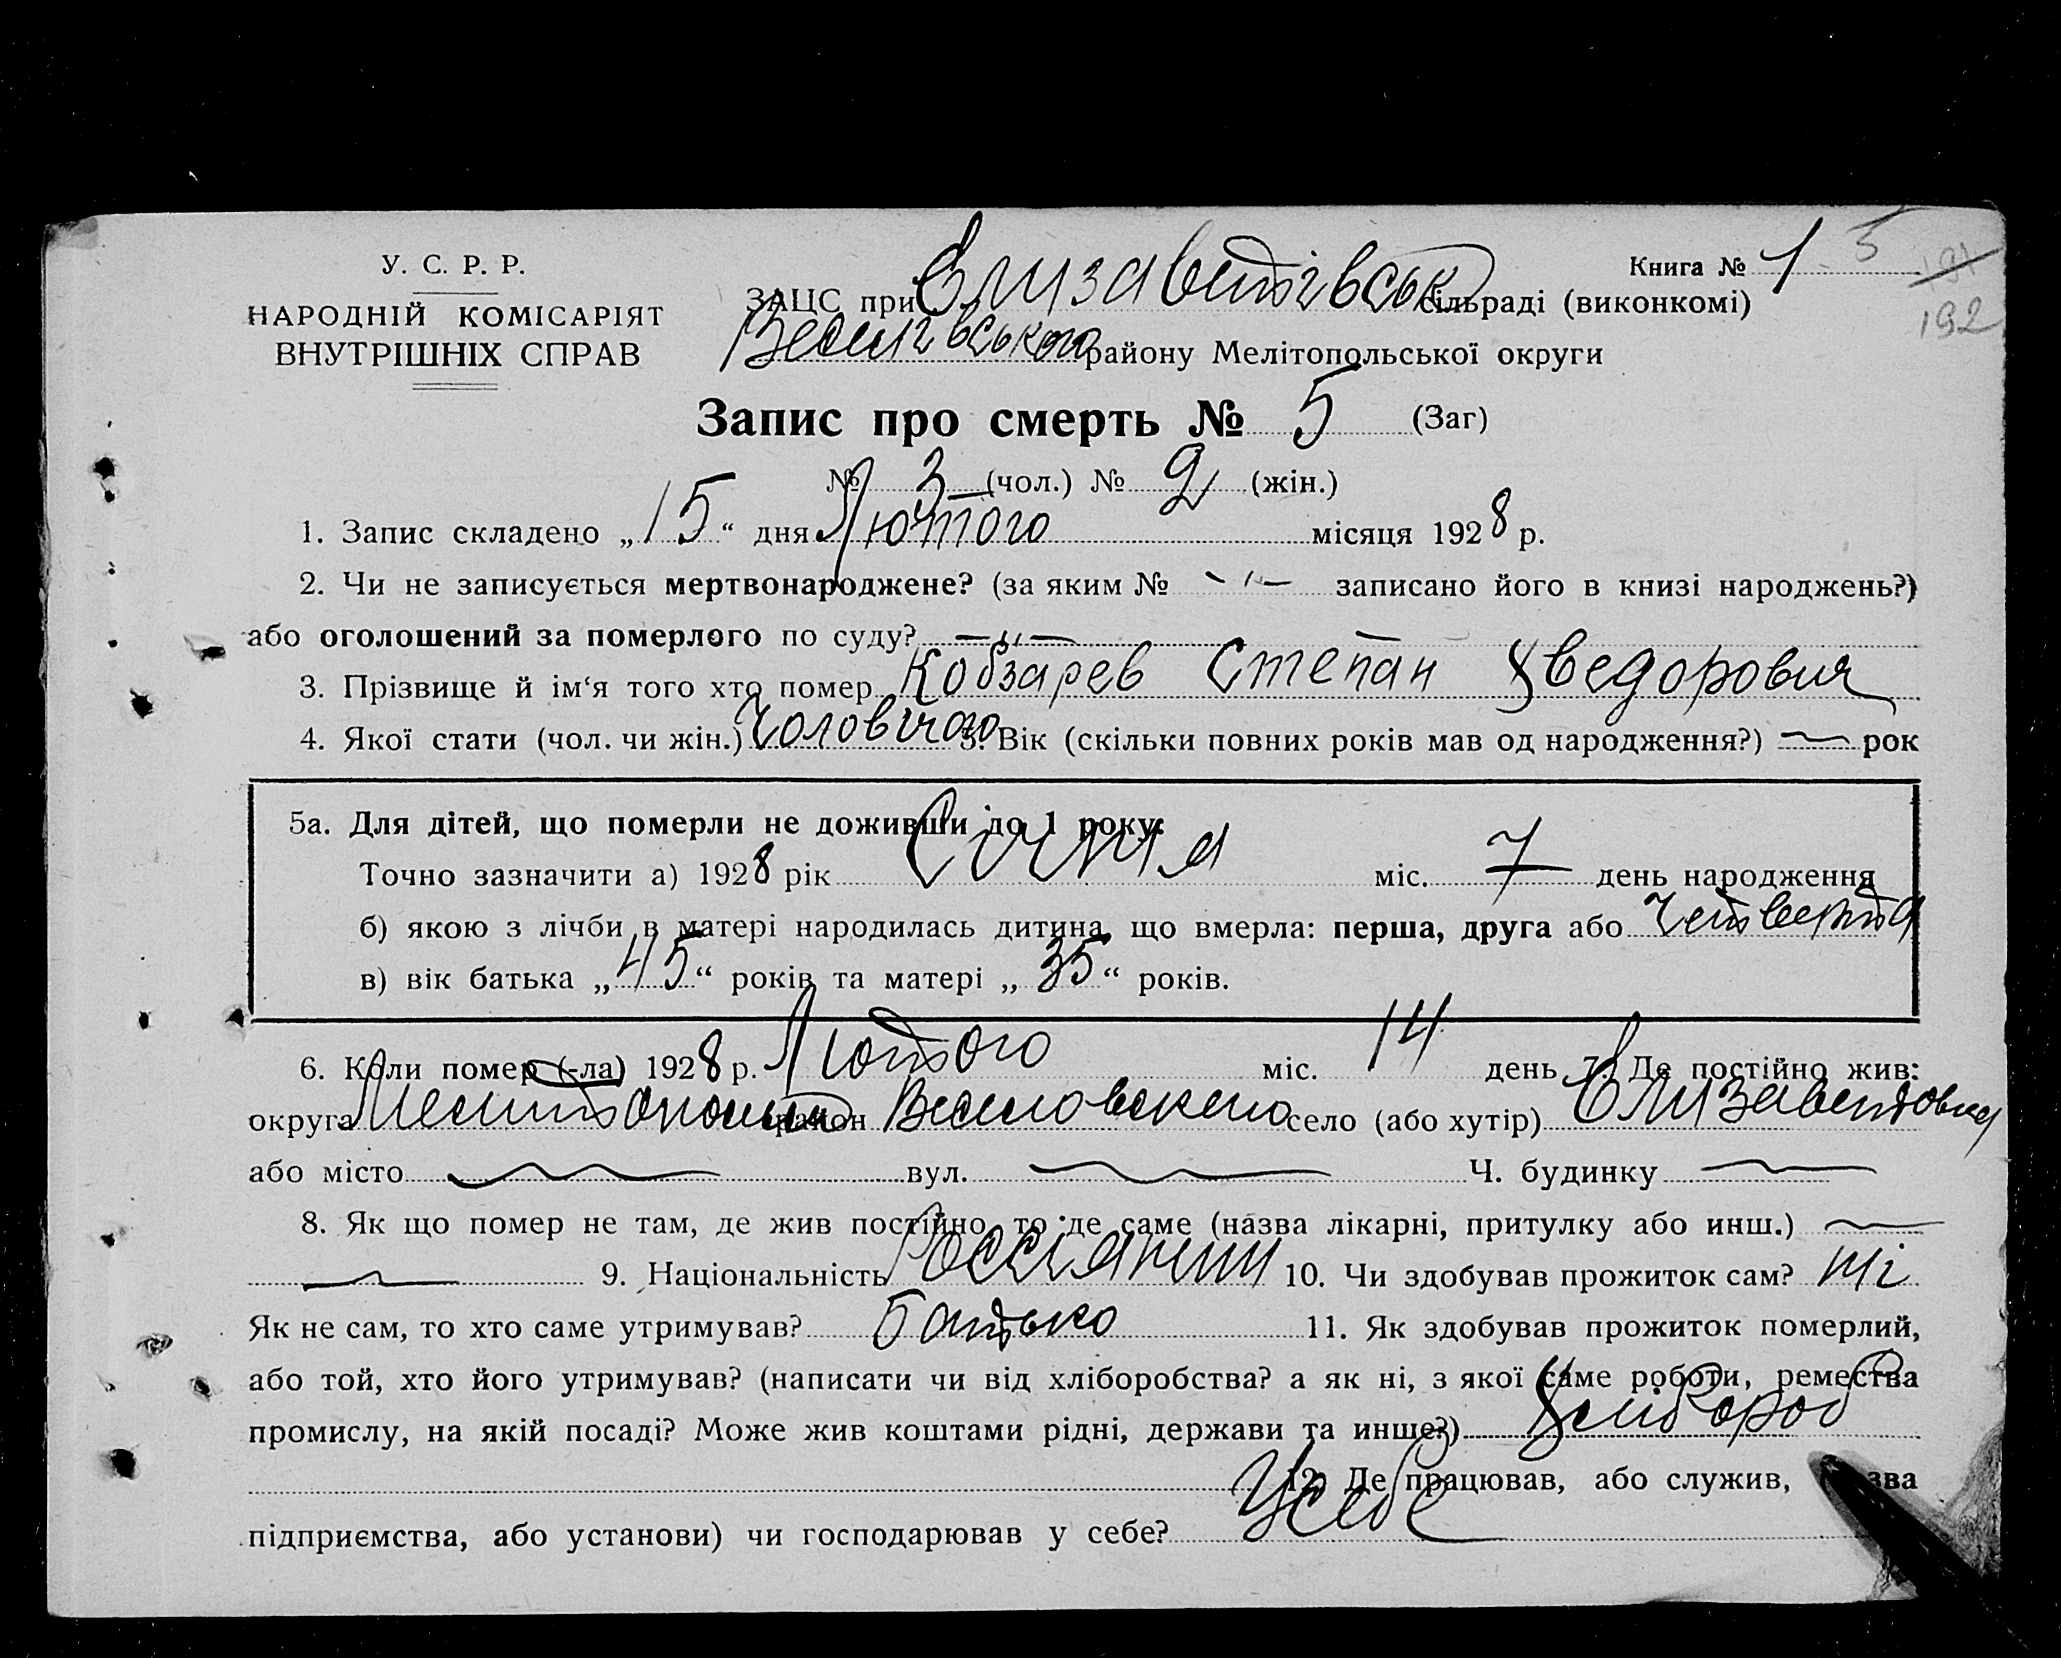 У. С. Р. Р.
НАРОДНІЙ КОМІСАРІЯТ
ВНУТРІШНІХ СПРАВ
Книга № 1 5
191
192
ЗАЦС при Елизаветівськ сільраді (виконкомі)
Веселівського району Мелітопольської округи
Запис про смерть № 5 (Заг)
№ 3 (чол.) № 2 (жін.)
1. Запис складено „15“ дня Лютого місяця 1928 р.
2. Чи не записується мертвонароджене? (за яким № -"- записано його в книзі народжень?)
або оголошений за померлого по суду? -"-
3. Прізвище й ім‘я того хто помер Кобзарев Степан
4. Якої стати (чол. чи жін.) Чоловічого 5. Вік (скільки повних років мав од народження?) — рок
5а. Для дітей, що померли не доживши до 1 року:
Точно зазначити а) 1928 рік Січня міс. 7 день народження
б) якою з лічби в матері народилась дитина, що вмерла: перша, друга або четверта
в) вік батька „45“ років та матері „35“ років.
6. Коли помер (-ла) 1928 р. Лютого міс. 14 день 7. Де постійно жив:
округа район село (або хутір) Елизаветовка
або місто — вул. — Ч. будинку —
8. Як що помер не там, де жив постійно, то де саме (назва лікарні, притулку або инш.) —
— 9. Національність 10. Чи здобував прожиток сам? ні
Як не сам, то хто саме утримував? батько 11. Як здобував прожиток померлий,
або той, хто його утримував? (написати чи від хліборобства? а як ні, з якої саме роботи, ремества
промислу, на якій посаді? Може жив коштами рідні, держави та инше?) Хлібороб
12. Де працював, або служив,
підприємства, або установи) чи господарював у себе? У себе